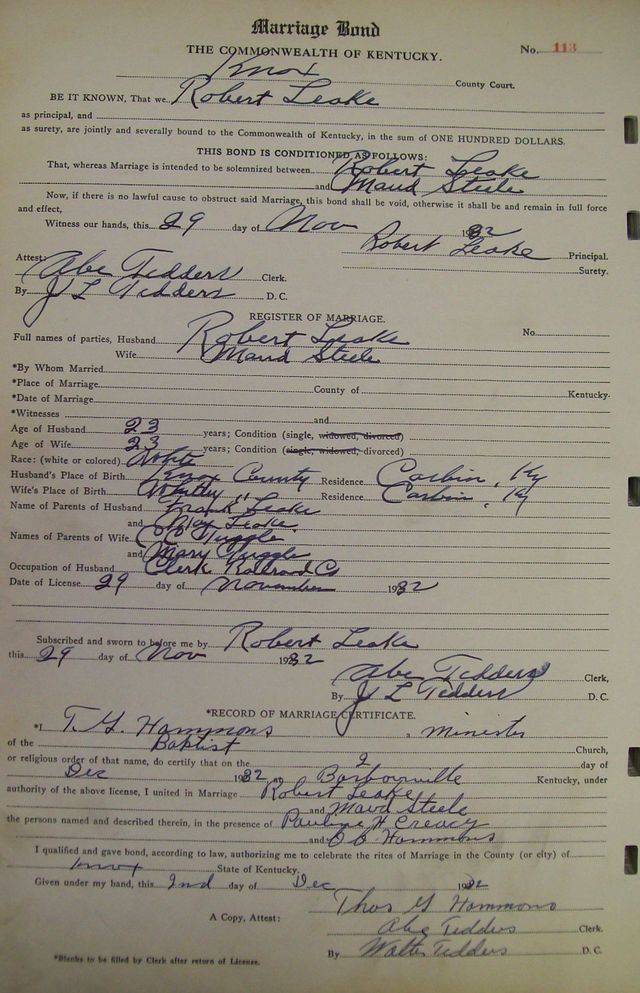 Marriage Bond
THE COMMONWEALTH OF KENTUCKY.
No. 113
Knox County Court.
BE IT KNOWN, That we Robert Leake
as principal, and
as surety, are jointly and severally bound to the Commonwealth of Kentucky, in the sum of ONE HUNDRED DOLLARS.
THIS BOND IS CONDITIONED AS FOLLOWS:
That, whereas Marriage is intended to be solemnized between Robert Leake
and Maud Steele
Now, if there is no lawful cause to obstruct said Marriage, this bond shall be void, otherwise it shall be and remain in full force
and effect,
Witness our hands, this 29 day of Nov 1932
Robert Leake Principal.
Surety.
Attest:
Abe Tedders Clerk.
By J L Tedders D. C.
REGISTER OF MARRIAGE.
Full names of parties, Husband Robert Leake No.
Wife Maud Steele
*By Whom Married
*Place of Marriage County of Kentucky.
*Date of Marriage
*Witnesses and
Age of Husband 23 years; Condition (single, widowed, divorced)
Age of Wife 23 years; Condition (single, widowed, divorced)
Race: (white or colored) White
Husband's Place of Birth Knox County Residence Corbin, Ky
Wife's Place of Birth Whitley " Residence Corbin, Ky
Name of Parents of Husband Frank Leake
and May Leake
Names of Parents of Wife Tuggle
and Mary Tuggle
Occupation of Husband Clerk Railroad Co
Date of License 29 day of November 1932
Subscribed and sworn to before me by Robert Leake
this 29 day of Nov 1932
Abe Tedders Clerk,
By J L Tedders D. C.
*RECORD OF MARRIAGE CERTIFICATE.
*I T. G. Hammons, minister
of the Baptist Church,
or religious order of that name, do certify that on the 2 day of
Dec 1932 at Barbourville Kentucky, under
authority of the above license, I united in Marriage Robert Leake
and Maud Steele
the persons named and described therein, in the presence of Pauline H Creacy
and O B Hammons
I qualified and gave bond, according to law, authorizing me to celebrate the rites of Marriage in the County (or city) of
Knox State of Kentucky.
Given under my hand, this 2nd day of Dec 1932
Thos G Hammons
A Copy, Attest: Abe Tedders Clerk.
By Walter Tedders D. C.
*Blanks to be filled by Clerk after return of License.